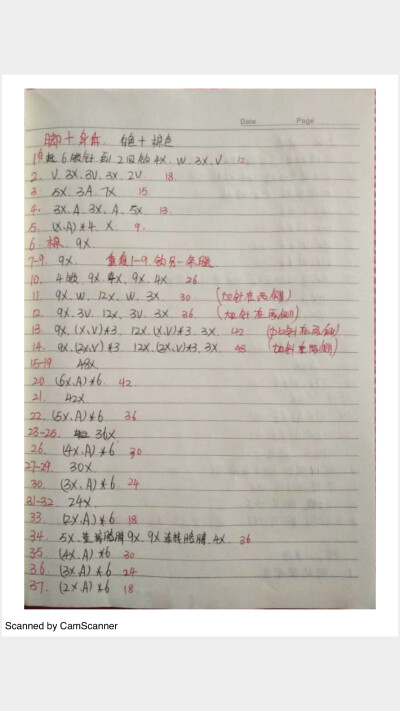 Date    Page
脚+身体. 白色+棕色
1. 白起6辫针 到2回钩4X. W. 3X. V. 12
2. V. 3X. 3V. 3X. 2V 18.
3. 5X. 3A. 7X 15
4. 3X. A. 3X. A. 5X 13.
5. (X.A)*4 X 9.
6. 棕. 9X
7-9. 9X. 重复1-9钩另一条腿
10. 4辫 9X. 4X. 9X. 4X 26
11. 9X. W. 12X. W. 3X. 30 (加针在两侧)
12. 9X. 3V. 12X. 3V. 3X 36 (加针在两侧)
13. 9X. (X.V)*3. 12X. (X.V)*3. 3X. 42 (加针在两侧)
14. 9X. (2X.V)*3 12X. (2X.V)*3. 3X. 48 (加针在两侧)
15-19 48X.
20 (6X.A)*6 42
21. 42X
22. (5X.A)*6 36
23-25. 36X
26. (4X.A)*6 30
27-29. 30X
30. (3X.A)*6 24
31-32. 24X
33. (2X.A)*6 18
34. 5X. 连接胳膊9X. 9X连接胳膊. 4X. 36
35. (4X.A)*6 30
36. (3X.A)*6 24
37. (2X.A)*6 18
Scanned by CamScanner